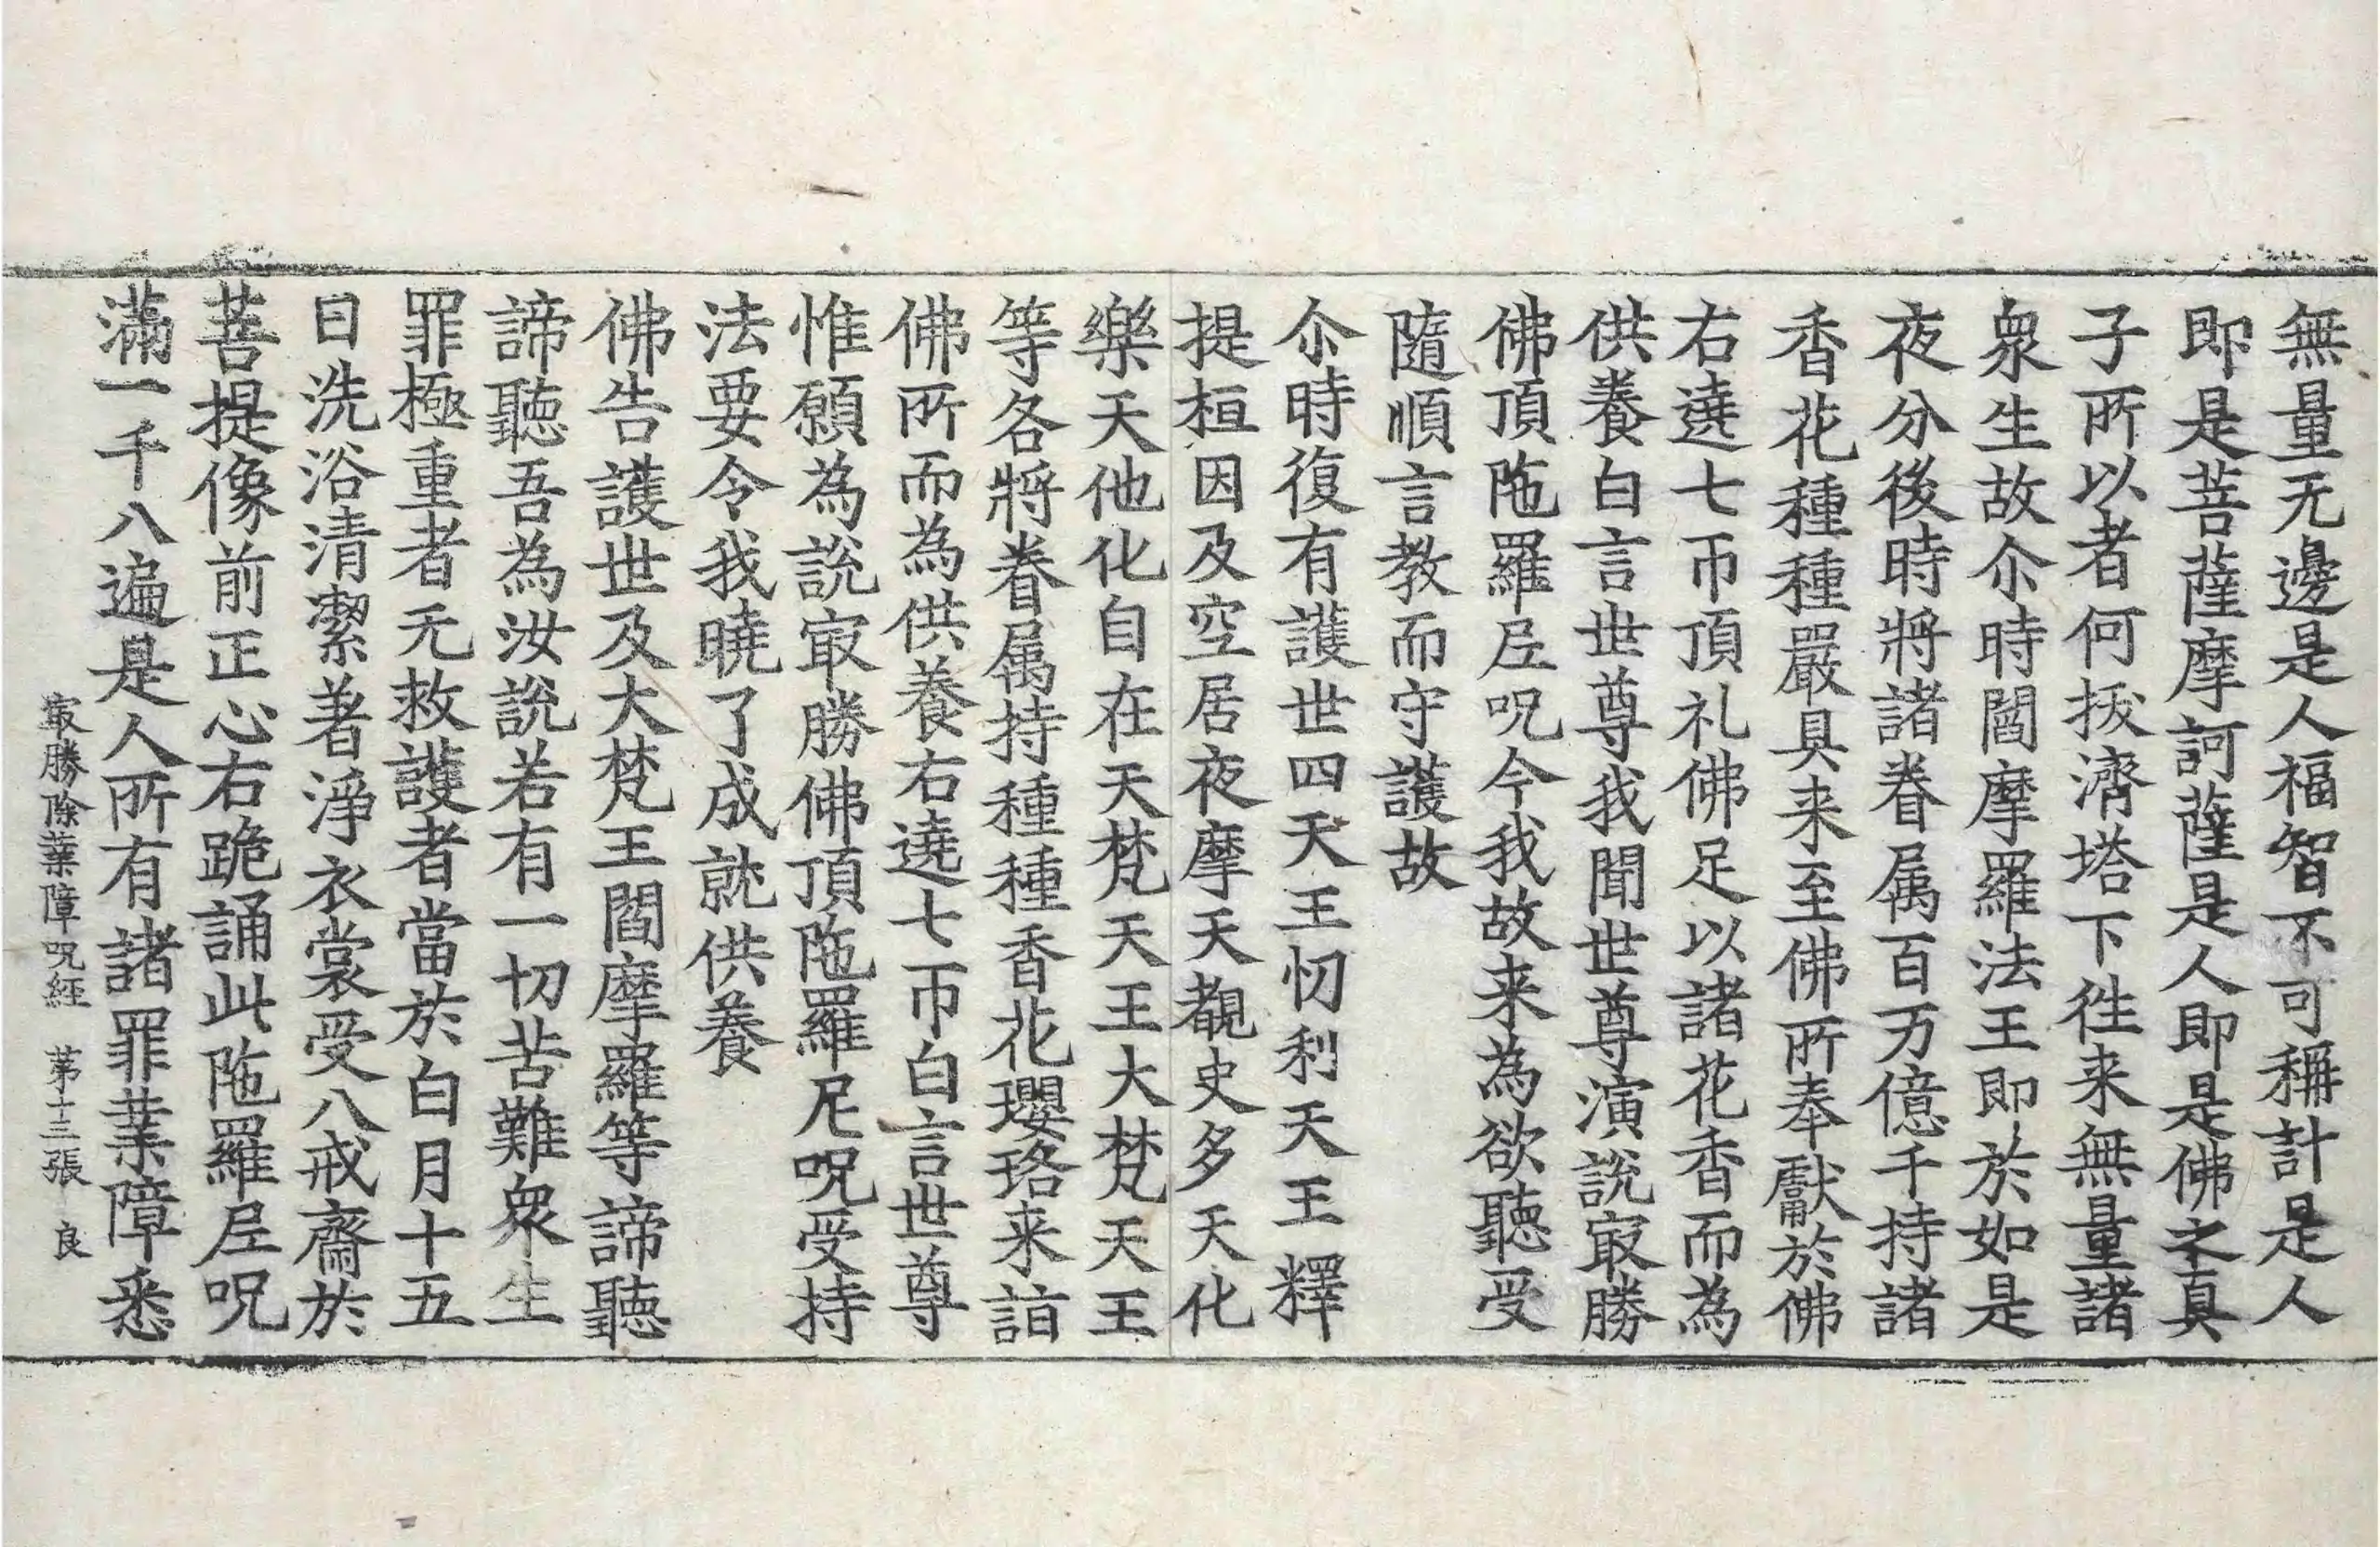 無量无邊是人福智不可稱計是人
即是菩薩摩訶薩是人即是佛之真
子所以者何拔濟塔下徃来無量諸
衆生故尒時閻摩羅法王即於如是
夜分後時將諸眷属百万億千持諸
香花種種嚴具来至佛所奉獻於佛
右遶七帀頂礼佛足以諸花香而為
供養白言世尊我聞世尊演說㝡勝
佛頂陁羅𡰱呪今我故来為欲聽受
隨順言教而守護故
尒時復有護世四天王忉利天王釋
提桓因及空居夜摩天覩史多天化
樂天他化自在天梵天王大梵天王
等各將眷属持種種香花瓔珞来詣
佛所而為供養右遶七帀白言世尊
惟願為說㝡勝佛頂陁羅尼呪受持
法要令我曉了成就供養
佛告護世及大梵王閻摩羅等諦聽
諦聽吾為汝說若有一切苦難衆生
罪極重者无救護者當於白月十五
日洗浴清潔著淨衣裳受八戒齋於
菩提像前正心右跪誦此陁羅𡰱呪
滿一千八遍是人所有諸罪業障悉
㝡勝除業障呪経 苐十三張 良